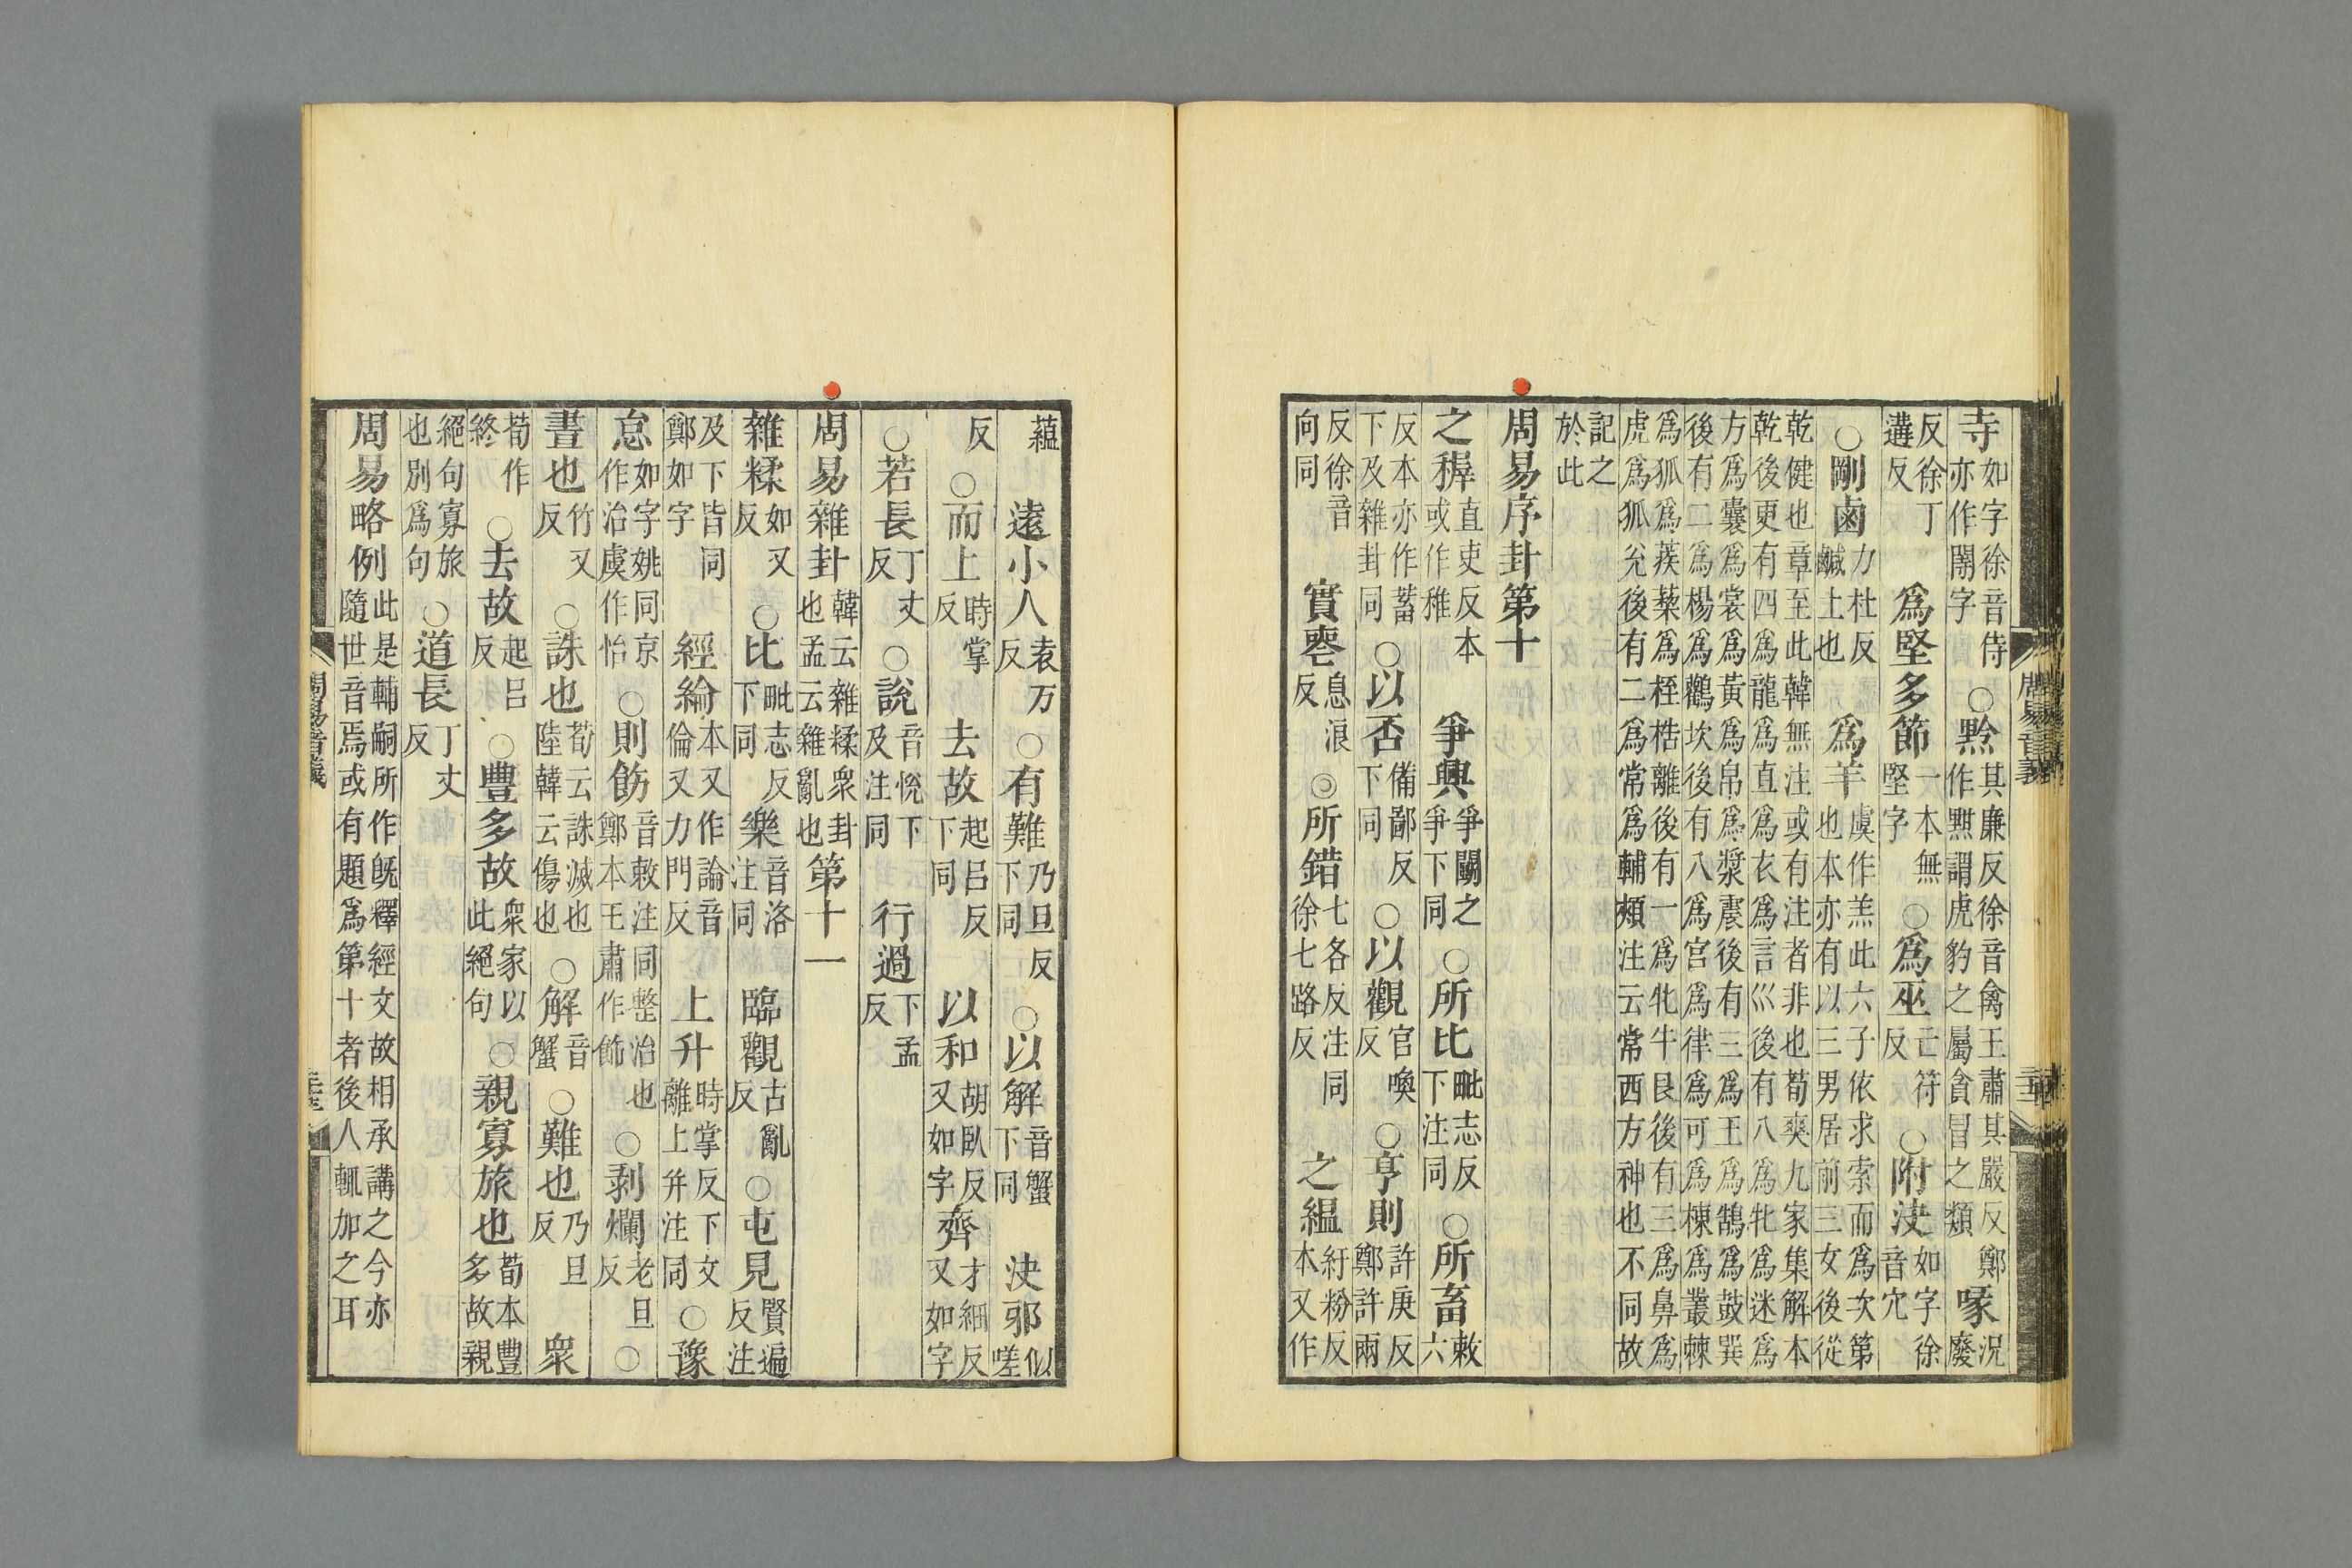 寺如字徐音侍亦作閽字○黔其廉反徐音禽王肅其嚴反鄭作黚謂虎豹之屬貪冒之類喙況廢
反徐丁遘反爲堅多節一本無堅字○爲巫亡符反○附決如字徐音穴
○剛鹵力杜反鹹土也爲羊虞作羔此六子依求索而爲次第也本亦有以三男居前三女後從
乾健也章至此韓無注或有注者非也荀爽九家集解本乾後更有四爲龍爲直爲衣爲言巛後有八爲牝爲迷爲
方爲囊爲裳爲黃爲帛爲漿震後有三爲王爲鵠爲鼓巽後有二爲楊爲鸛坎後有八爲宮爲律爲可爲棟爲叢棘
爲狐爲蒺蔾爲桎梏離後有一爲牝牛艮後有三爲鼻爲虎爲狐兊後有二爲常爲輔頰注云常西方神也不同故
記之於此
周易序卦第十
之稺直吏反本或作稚爭興爭鬭之爭下同○所比毗志反下注同○所畜敕六
反本亦作蓄下及雜卦同○以否備鄙反下同○以觀官喚反○亨則許庚反鄭許兩
反徐音向同實䘮息浪反◎所錯七各反注同徐七路反之緼紆粉反本又作
蘊遠小人袁万反○有難乃旦反下同○以解音蟹下同決邪似嗟
反○而上時掌反去故起呂反下同以和胡臥反又如字齊才細反又如字
○若長丁丈反○說音悅下及注同行過下孟反
周易雜卦韓云雜糅衆卦也孟云雜亂也第十一
雜糅如又反○比毗志反下同樂音洛注同臨觀古亂反○屯見賢遍反注
及下皆同鄭如字經綸本又作論音倫又力門反上升時掌反下文離上并注同○豫
怠如字姚同京作治虞作怡○則飭音敕注同整治也鄭本王肅作飾○剥爛老旦反○
晝也竹又反○誅也荀云誅滅也陸韓云傷也○解音蟹○難也乃旦反衆
荀作終○去故起呂反○豊多故衆家以此絕句○親寡旅也荀本豊多故親
絕句寡旅也別爲句○道長丁丈反
周易略例此是輔嗣所作旣釋經文故相承講之今亦隨世音焉或有題爲第十者後人輒加之耳
周易音義
周易音義